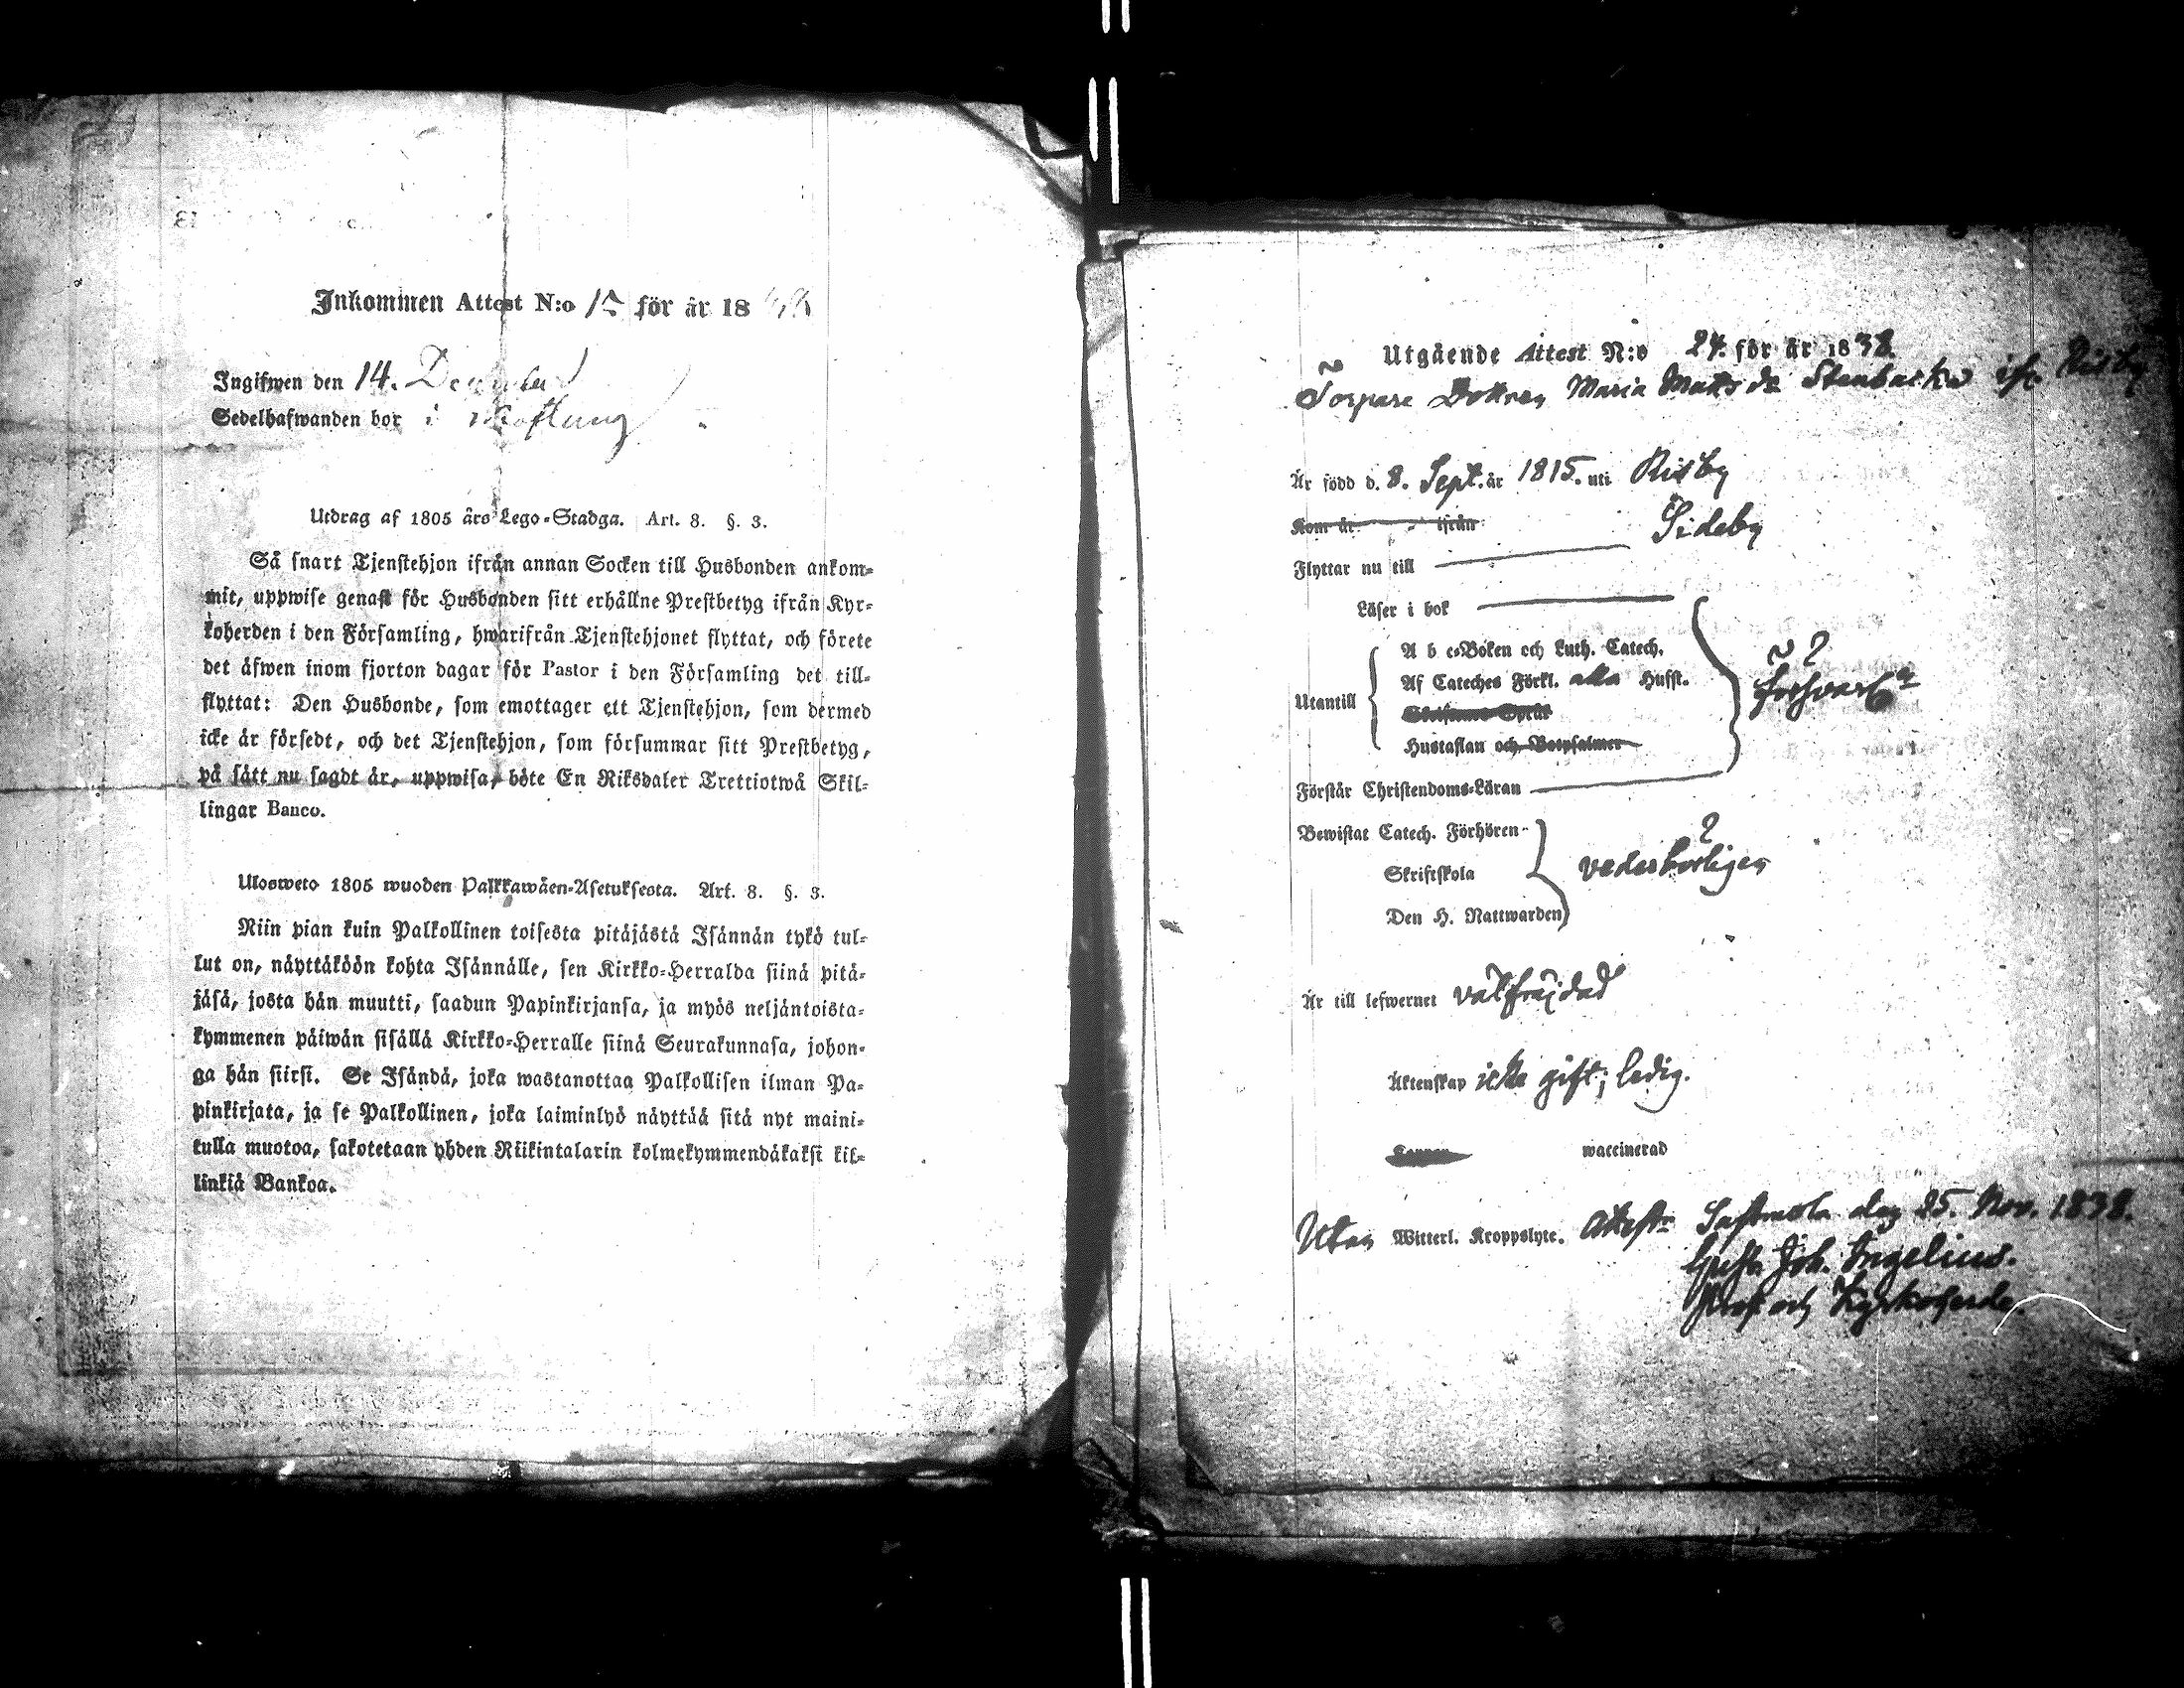 Inkommen Attest N:o 12 för år 18
Ingifwen den 14. December
Sedelhafwanden bor i
Utdrag af 1805 års Lego-Stadga. Art. 8. §. 3.
Så snart Tjenstehjon ifrån annan Socken till Husbonden ankom-
mit, uppwise genast för Husbonden sitt erhållne Prestbetyg ifrån Kyr-
koherden i den Församling, hwarifrån Tjenstehjonet flyttat, och förete
det äfwen inom fjorton dagar för Pastor i den Församling det till-
flyttat: Den Husbonde, som emottager ett Tjenstehjon, som dermed
icke är försedt, och det Tjenstehjon, som försummar sitt Prestbetyg,
på sätt nu sagdt är, uppwisa, böte En Riksdaler Trettiotwå Skil-
lingar Banco.
Ulosweto 1805 wuoden Palkkawäen-Asetuksesta. Art. 8. §. 3.
Niin pian kuin Palkollinen toisesta pitäjästä Isännän tykö tul-
lut on, näyttäköön kohta Isännälle, sen Kirkko-Herralda siinä pitä-
jäsä, josta hän muutti, saadun Papinkirjansa, ja myös neljäntoista-
kymmenen päiwän sisällä Kirkko-Herralle siinä Seurakunnasa, johon-
ga hän siirsi. Se Isändä, joka wastanottaa Palkollisen ilman Pa-
pinkirjata, ja se Palkollinen, joka laiminlyö näyttää sitä nyt maini-
tulla muotoa, sakotetaan yhden Riikintalarin kolmekymmendäkaksi kil-
linkiä Bankoa.
Utgående Attest N:o 24. för år 1838
Torpare Dottren Maria Matts dr Stenbacka ifr. Risby
Är född d. 8. Sept. år 1815. uti Risby
Kom år ifrån Sideby
Flyttar nu till
Läser i bok
A b c-Boken och Luth. Catech.
Af Cateches Förkl. alla Husst.
Utantill
Hustaflan och Botpsalmer
Förstår Christendoms-Läran
Bewistat Catech. Förhören
Skriftskola vederbörligen
Den H. Nattwarden
Är till lefwernet välfräjdad
Äktenskap icke gift; ledig.
waccinerad
Utan Witterl. Kroppslyte. Lastmola den 25. Nov. 1838.
Gust. Joh. Ingelius.
Prost och Kyrkoherde